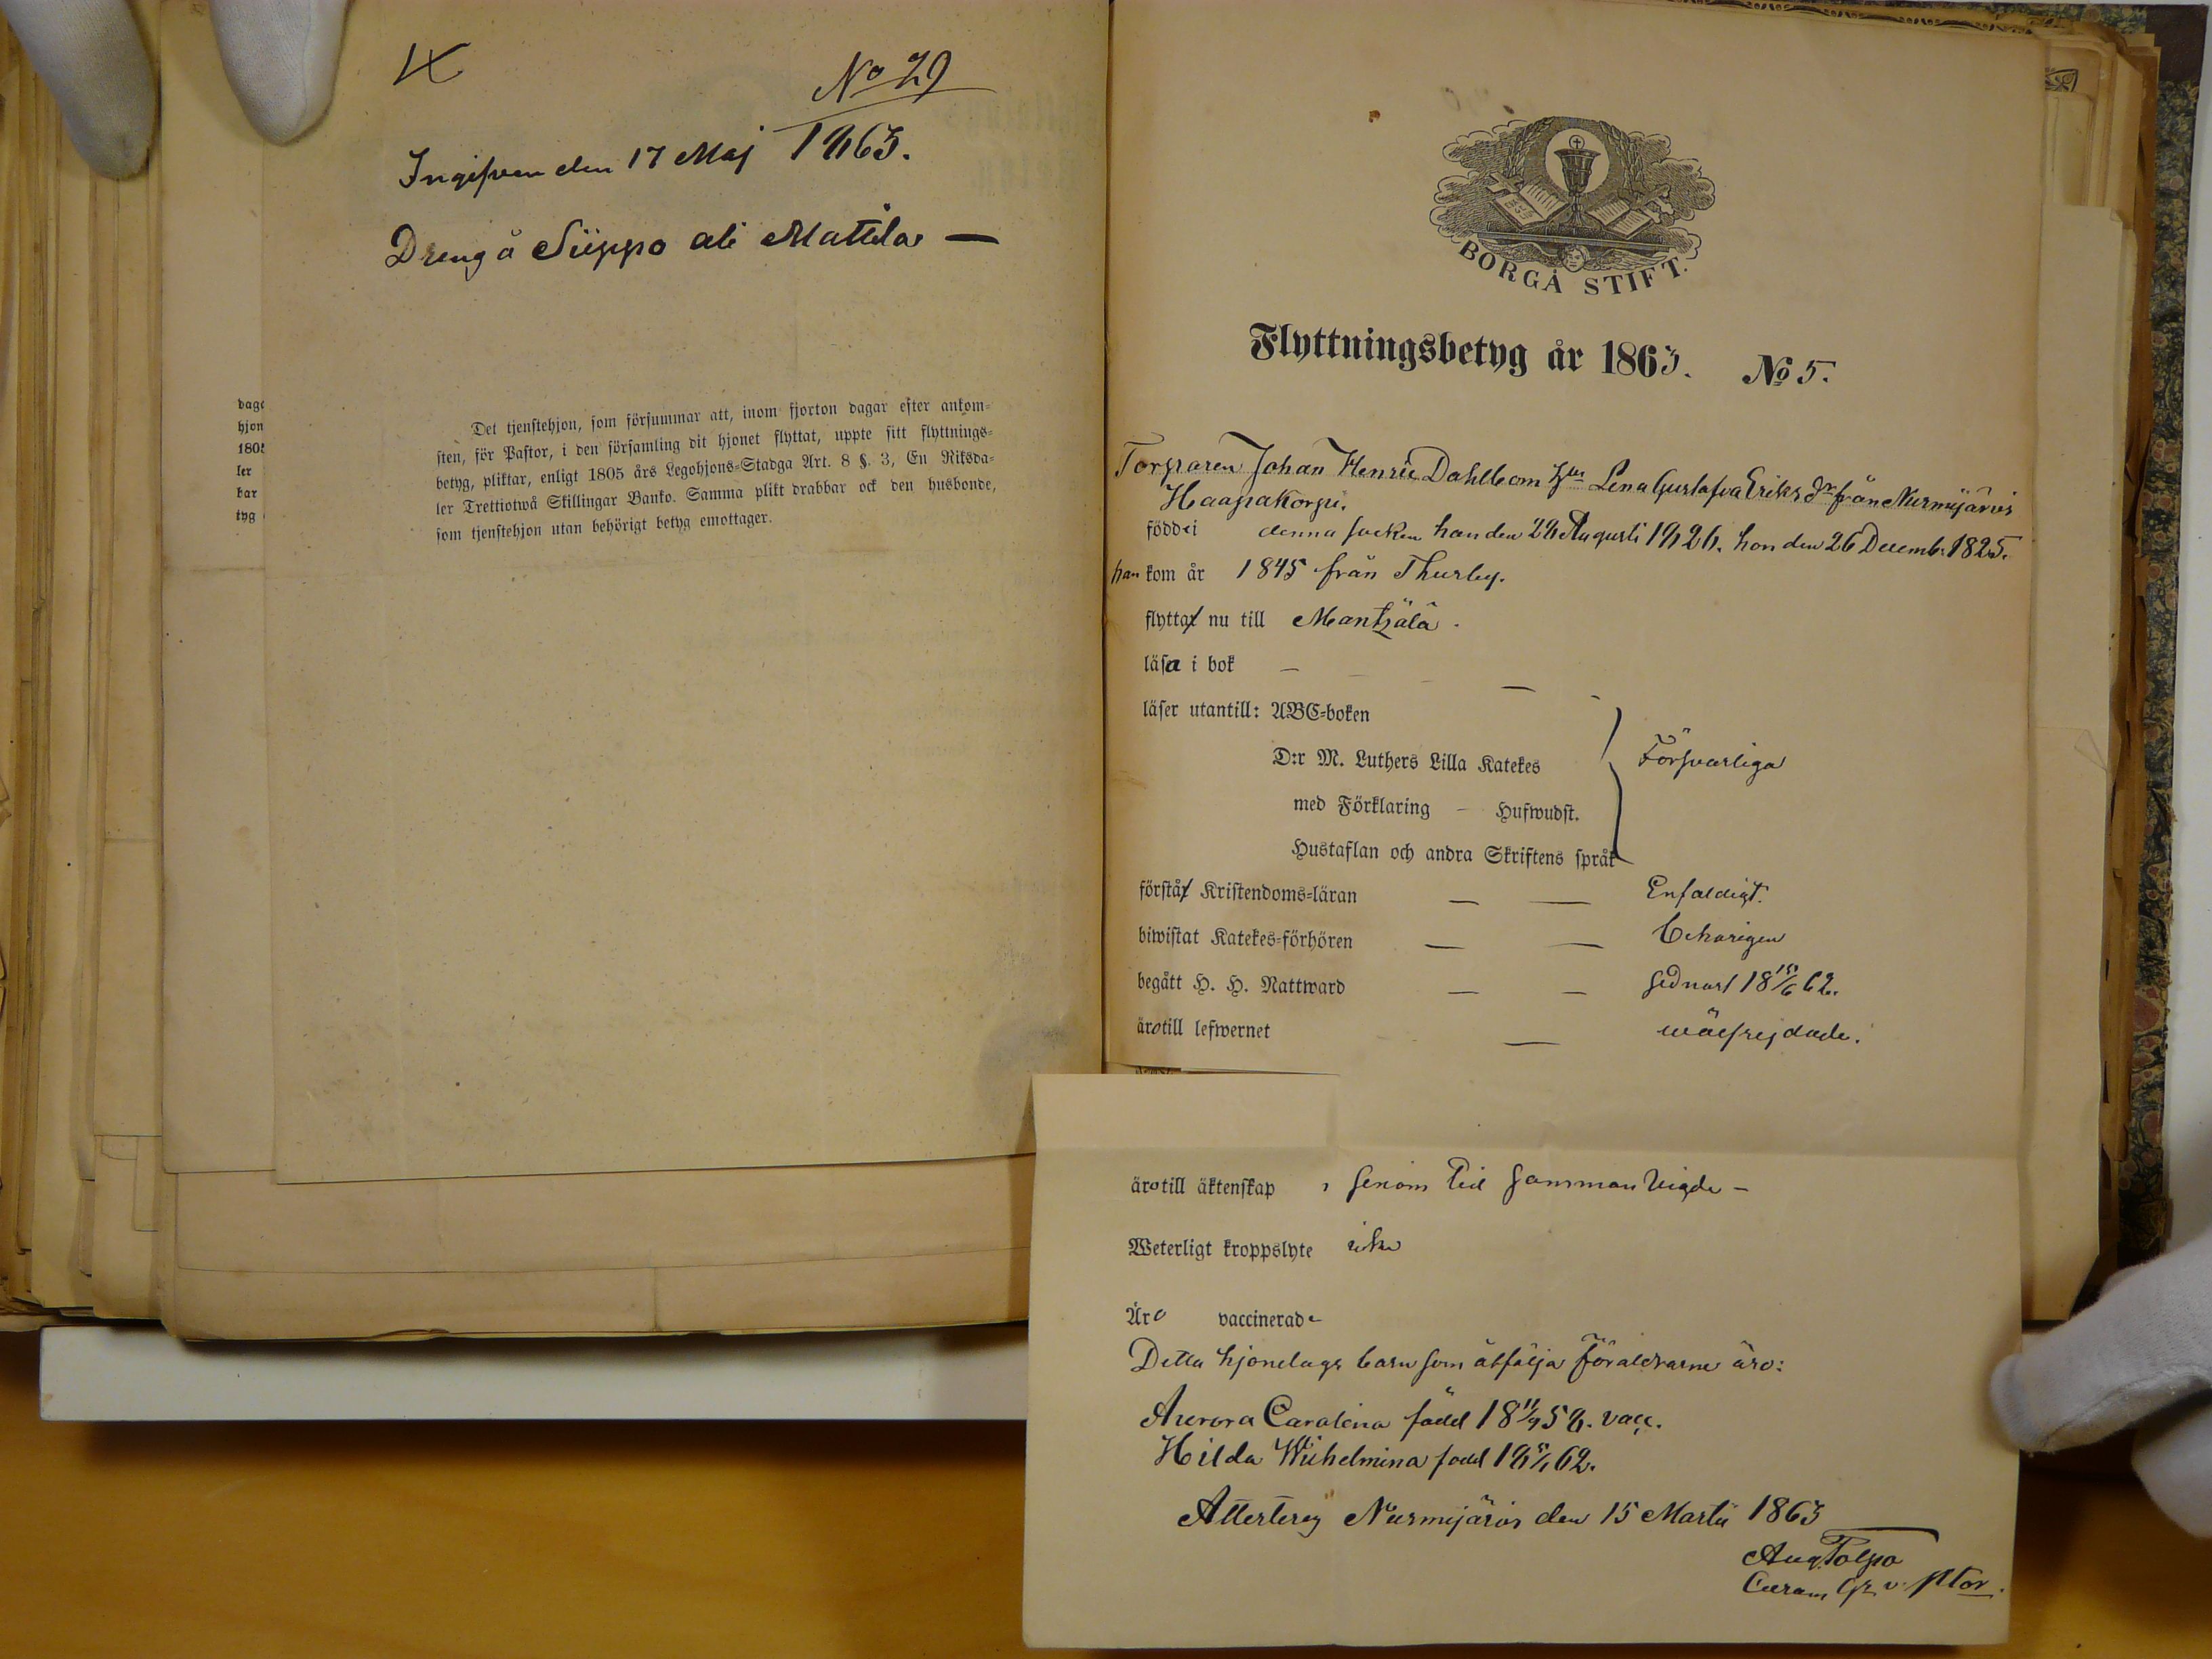 No 29
Ingifven den 17 Maj 1863.
Dreng å Siippo ali Mattila —
Det tjenstehjon, som försummar att, inom fjorton dagar efter ankom-
sten, för Pastor, i den församling dit hjonet flyttat, uppte sitt flyttnings-
betyg, pliktar, enligt 1805 års Legohjons-Stadga Art. 8 §. 3, En Riksda-
ler Trettiotwå Skillingar Banko. Samma plikt drabbar ock den husbonde,
som tjenstehjon utan behörigt betyg emottager.
dage
hjon
1805
ler
kar
tyg
BORGÅ STIFT.
Flyttningsbetyg år 1863. No 5.
Torparen Johan Henric Dahlbom Lena Gustafva Eriks dr från Nurmijärvi
Haapakorpi.
födde i denna socken han den 28 Augusti 1826. hon den 26 Decemb. 1825.
han kom år 1845 från Thusby.
flytta nu till Mäntzälä.
läsa i bok —
läser utantill: ABC-boken
D:r M. Luthers Lilla Katekes Försvarliga
med Förklaring — Hufwudst.
Hustaflan och andra Skriftens språk
förstå Kristendoms-läran — — Enfaldigt.
biwistat Katekes-förhören — —
begått H. H. Nattward — — sednast 18 15/6 62.
äro till lefwernet — wälfrejdade.
äro till äktenskap genom tid sammanvigde —
Weterligt kroppslyte icke
Äro vaccinerade
Detta hjonelags barn som åtfölja föräldrarne äro:
Aurora Carolina född 18 11/9 58. vacc.
Hilda Wilhelmina född 18 5/1 62.
Attesterej Nurmijärvi den 15 Martii 1863
Aug. Tolpo
v. pstor.